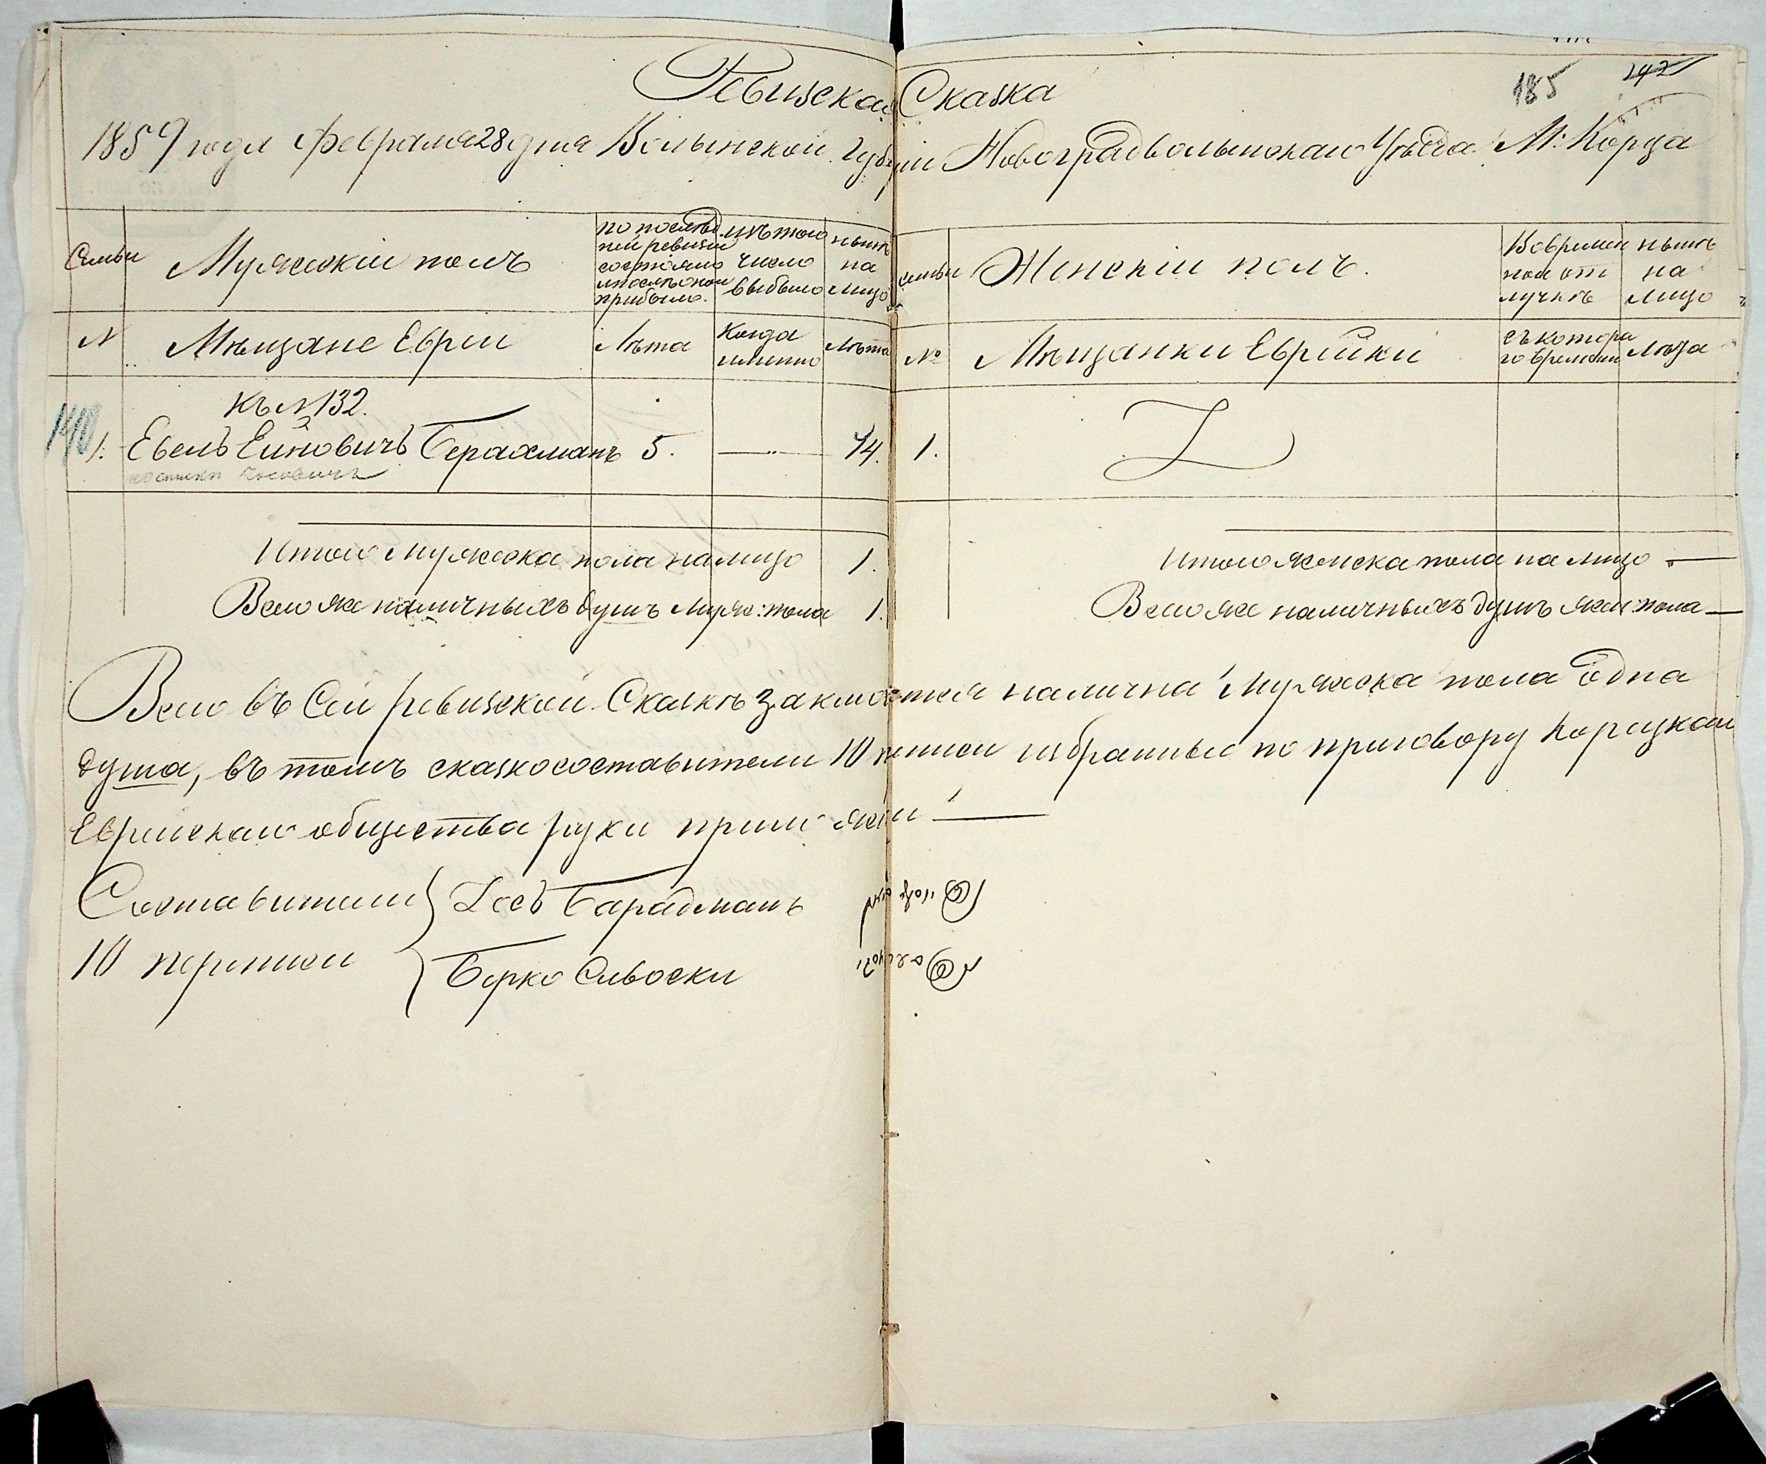 Ревизская Сказка
185 242
1859 года февраля 28 дня Волынской Губерніи Новоградволынскаго Уѣзда М: Корца
Семьи
Мужескій полъ
по послѣд
ней ревизіи
состояло
и послѣ оной
прибыло.
изъ того
число
выбыло
нынѣ
на
лицо
семьи
Женскій полъ.
Вовремен
ной от
лучкѣ
нынѣ
на
лицо
№
Мѣщане Евреи
Лѣта
Когда
именно
Лѣта
№
Мѣщанки Еврейки
съ котора
го времени
лѣта
Къ №132.
1. Евель Ейновичъ Берахманъ 5. — 14. 1.
Итого мужеска пола налицо 1.
Итого женска пола на лицо —
Всего же наличныхъ душъ муж: пола 1.
Всего же наличныхъ душъ жен: пола —
Всего въ сей ревизской Сказкѣ заключается налична мужеска пола одна
душа, въ томъ сказкосоставители 10 переписи избранные по приговору Корецкаго
Еврейскаго общества руки приложили —
Составители
10 переписи
Берко